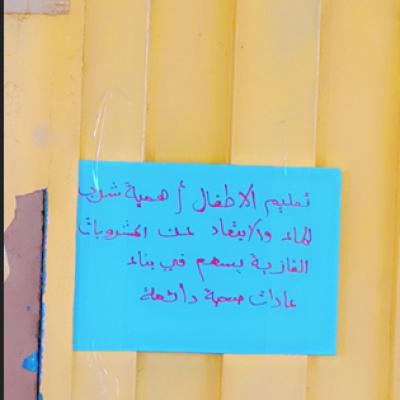 تعليم الاطفال أهمية شرب
الماء والابتعاد عن المشروبات
الغازية يسهم في بناء
عادات صحية دائمة